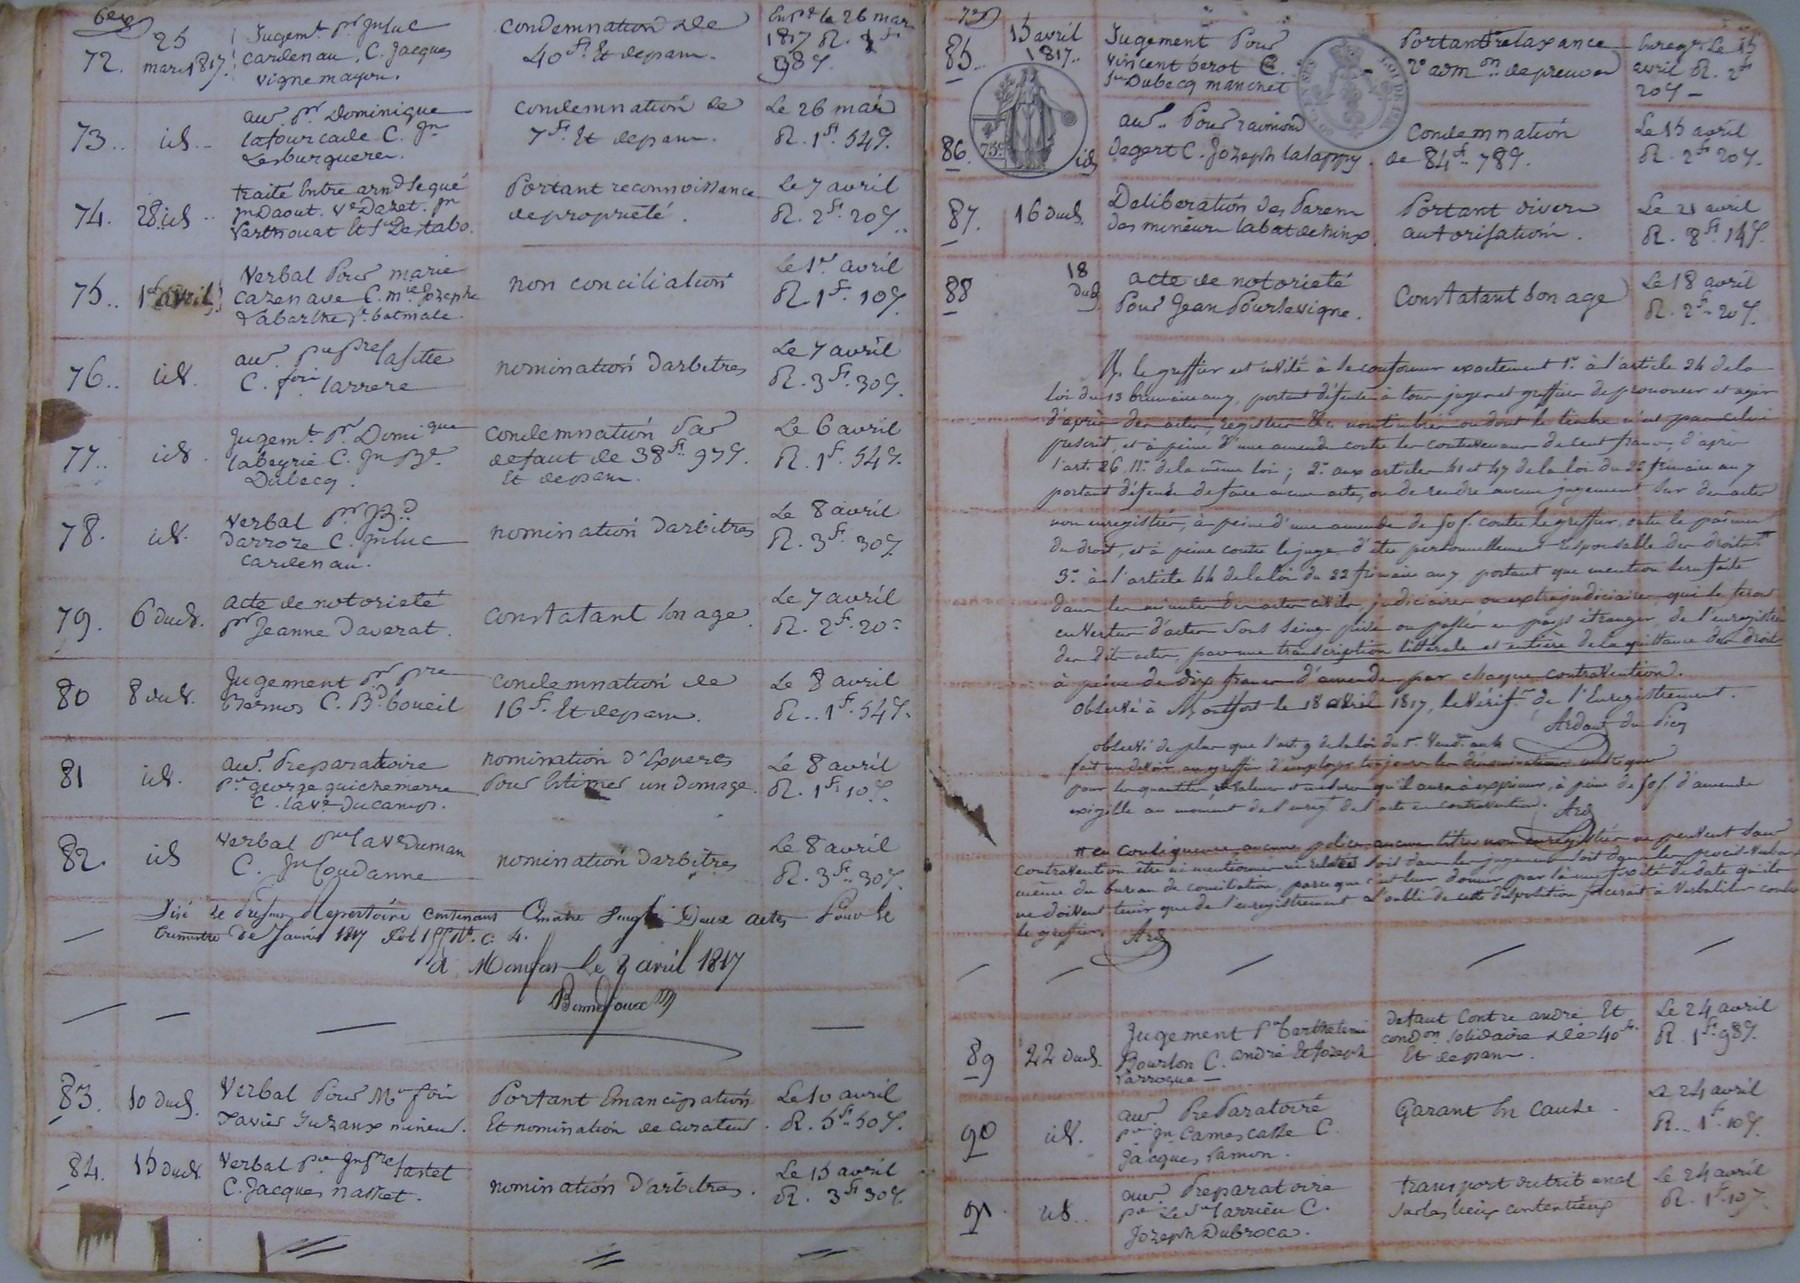 6e
72. 25 mars 1817. Jugemt. pr. jn luc
cardenau. C. Jacques
vignemayou.
condemnation de
40 ft. Et depans.
Enr. le 26 mars
1817 R. 1 ft
98 c.
73.. id.. au. pr. Dominique
lafourcade C. jn
Lesburguere.
condemnation de
7 ft. Et depans.
Le 26 mars
R. 1 ft. 54 c.
74. 28 id.. traité Entre arnd. Lequé
jn Daout. ve. Dazet. jn
Portant reconnoissance
de propriété.
Le 7 avril
R. 2 ft. 20 c.
75.. 1er avril Verbal Pour marie
cazenave C. mie. Jozephe
Labarthe
non conciliation
Le 1er avril
R. 1 f. 10 c.
76.. id. au. lafitte
C. larrere
nomination Darbitres
Le 7 avril
R. 3 ft. 30 c.
77.. id. Jugemt. pr. Domique
labeyrie C. jn Bte.
Dubecq.
condemnation Par
defaut de 38 ft. 97 c.
Et depans.
Le 6 avril
R. 1 f. 54 c.
78. id. Verbal pr. JBd.
Darroze C. jn luc
cardenau.
nomination Darbitres
Le 8 avril
R. 3 ft. 30 c.
79. 6 dud. acte de notorieté
pr. Jeanne Daverat.
Constatant Son age.
Le 7 avril
R. 2 f. 20 c
80 8 dud. Jugement pr. pre
C. Bd. boueil
condemnation de
16 f. Et depans.
Le 8 avril
R.. 1 f. 54 c.
81 id. au. Preparatoire
pr. george guichemerre
C. la ve. Ducamp.
nomination d'Experts
Pour Estimer un Domage.
Le 8 avril
R. 1 ft. 10 c.
82. id Verbal pr. la ve Duman
C. jn Coudanne
nomination Darbitres
Le 8 avril
R. 3 ft. 30 c.
Visé le Present Repertoire Contenant Quatre Vingt Deux actes Pour le
trimestre de Janvier 1817
a Monfort Le 8 avril 1817
83. 10 Dud. Verbal Pour Mr foix
Xavier mineur.
Portant Emancipation
Et nomination de curateur.
Le 10 avril
R. 5 ft. 50 c.
84. 15 Dud. Verbal pr. jn pre lastet
C. Jacques nasset.
nomination D'arbitres.
Le 15 avril
R. 3 ft. 30 c.
7e
85.. 15 avril 1817.. Jugement Pour
vincent berot C.
Dubecq manchet
Portant relaxance
de preuves
Enregr. Le 15
avril R. 2 ft
20 c
75c
86. id au.. Pour raimond
degert C. Jozeph lalappy.
Condemnation
de 84 f. 78 c.
Le 15 avril
R. 2 ft. 20 c.
87. 16 dud. Deliberation des Parens
des mineurs labat de hinx
Portant divers
autorisation.
Le 21 avril
R. 8 ft. 14 c.
88 18 dud. acte de notorieté
Pour Jean Pourlevigne.
Constatant Son age
Le 18 avril
R. 2 f. 20 c.
M. le greffier est invité à se conformer exactement 1°. à l'article 24 de la
loi du 13 brumaire an 7, portant défense à tous juges et greffiers de prononcer et agir
d'après des actes, registres &c. non timbrés ou dont le timbre n'est pas celui
prescrit, et à peine d'une amende contre les contrevenans de cent francs, d'après
l'art. 26, 11°. de la même loi; 2°. aux articles 41 et 47 de la loi du 22 frimaire an 7
portant défense de faire aucun acte, ou de rendre aucun jugement sur des actes
non enregistrés, à peine d'une amende de 50 f. contre le greffier, outre le paiement
du droit, et à peine contre le juge d'être personnellement responsable des droits #
3°. à l'article 44 de la loi du 22 frimaire an 7 portant que mention sera faite
dans les minutes des actes civils, judiciaires ou extrajudiciaires, qui se feront
en vertu d'actes sous seing privé ou passés en pays étranger, de l'enregistrement
des dits actes, par une transcription littérale et entière de la quittance des droits
à peine de dix francs d'amende par chaque contravention.
observé à Montfort le 18 avril 1817, le vérifr. de l'Enregistrement.
Ardant du Picq
observé de plus que l'art. 9 de la loi du 1er. Vendre. an 4
fait un devoir au greffier d'employer toujours les dénominations
pour les quantités, valeurs et mesures qu'il aura à exprimer, à peine de 50 f. d'amende
exigible au moment de l'enregt. de l'acte en contravention. Ard
# en conséquence aucune police, aucun titre non enregistrés ne peuvent sans
contravention être ni mentionnés ni relatés soit dans les jugemens soit dans les procès-verbaux
même du bureau de conciliation, parce que c'est leur donner par là une fixité de date qu'ils
ne doivent tenir que de l'enregistrement. L'oubli de cette disposition forcerait à Verbaliser contre
le greffier. Ard
89 22 dud. Jugement Pr barthelemi
Bourlon C. andré Et Jozeph
Larroque
defaut Contre andré Et
condon. Solidaire de 40 ft.
Et depans.
Le 24 avril
R. 1 ft. 98 c.
90 id. au. PrePalatoiré
pr. jn Camescasse C.
Jacques Lamon.
Garant En Cause.
Le 24 avril
R.. 1 f. 10 c.
91. id.. au. Preparatoire
pr. Le Sr. larrieu C.
Jozeph Dubroca.
transport du tribunal
Sur les lieux contentieux
Le 24 avril
R. 1 ft. 10 c.